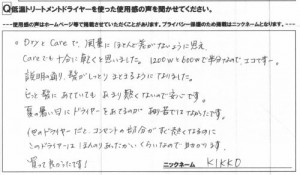 Q低温トリートメントドライヤーを使った使用感の声を聞かせてください。
使用感の声はホームページ等で掲載させていただくことがあります。プライバシー保護のため掲載はニックネームとなります。
・Dryと Careで、風量にほとんど差がないように思え、
Careでも十分に乾くと思いました。1200Wと600Wで半分なので、エコですー。
説明の通り、髪がしっとりまとまるようになりました。
ずっと髪にあてていても、あまり熱くないので安心です。
夏の暑い日にドライヤーをあてるのが
他のドライヤーだと、コンセントの部分がすごく熱くなるのに
このドライヤーは、ほんのりあたたかいくらいなので、助かります。
買って良かったです!
ニックネーム KIKKO